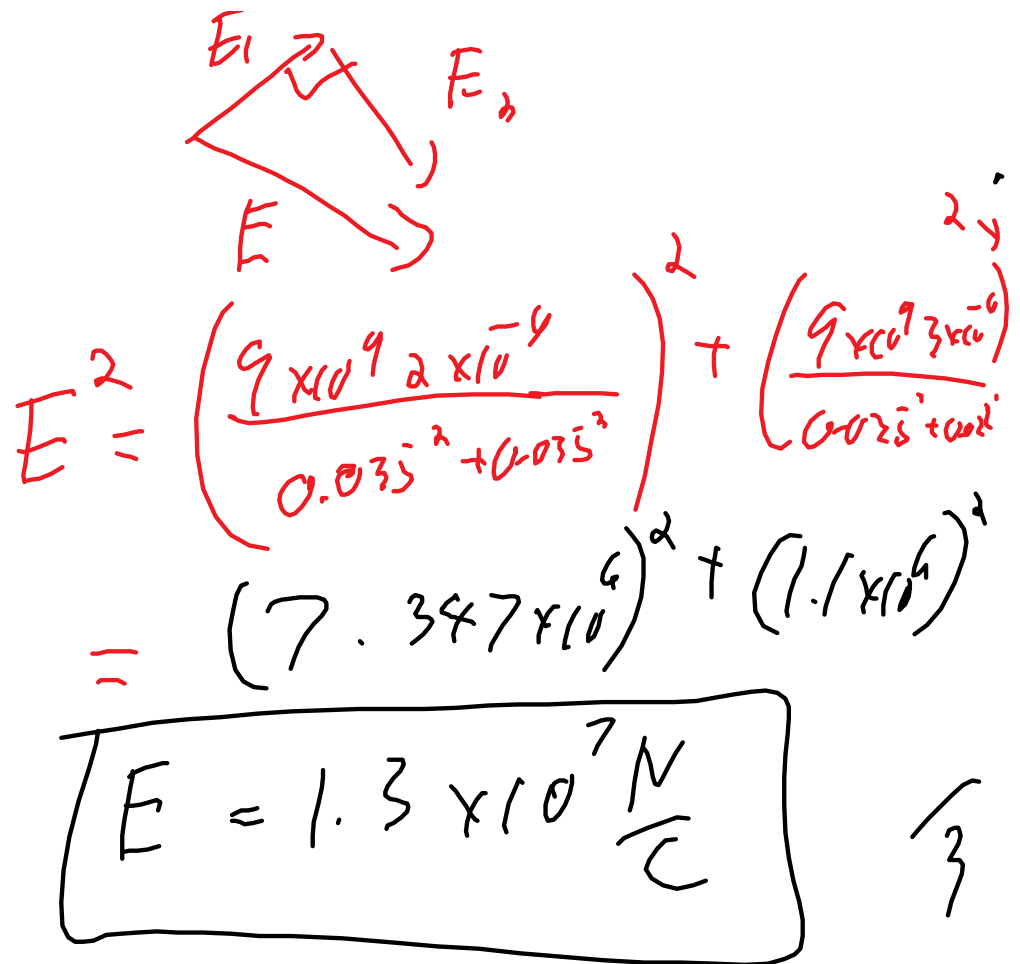 E1
E2
E
E² = (9 x10⁹ 2 x10⁻⁶ / 0.035² + 0.035²)² + (9 x10⁹ 3 x10⁻⁶ / 0.035² + 0.035²)²
= (7.347 x10⁶)² + (1.1 x10⁶)²
E = 1.3 x10⁷ N/C